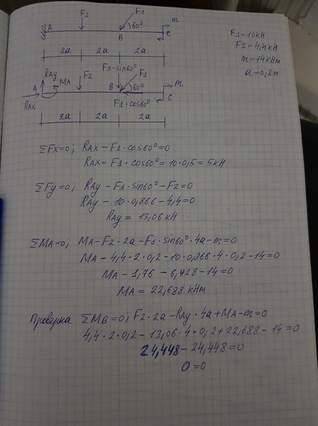 F2 F1 60° m
A B C
2a 2a 2a
F1 = 10кН
F2 = 4,4кН
m = 14кНм
a = 0,2м
RAy MA F2 F1·sin60° F1 60° m
RAx A B C
F1·cos60°
2a 2a 2a
ΣFx=0; RAx - F1·cos60°=0
RAx = F1·cos60° = 10·0,5 = 5кН
ΣFy=0; RAy - F1·sin60° - F2=0
RAy - 10·0,866 - 4,4=0
RAy = 13,06 кН
ΣMA=0; MA - F2·2a - F1·sin60°·4a - m=0
MA - 4,4·2·0,2 - 10·0,866·4·0,2 - 14=0
MA - 1,76 - 6,928 - 14=0
MA = 22,688 кНм
Проверка ΣMB=0; F2·2a - RAy·4a + MA - m=0
4,4·2·0,2 - 13,06·4·0,2 + 22,688 - 14=0
24,448 - 24,448=0
0=0